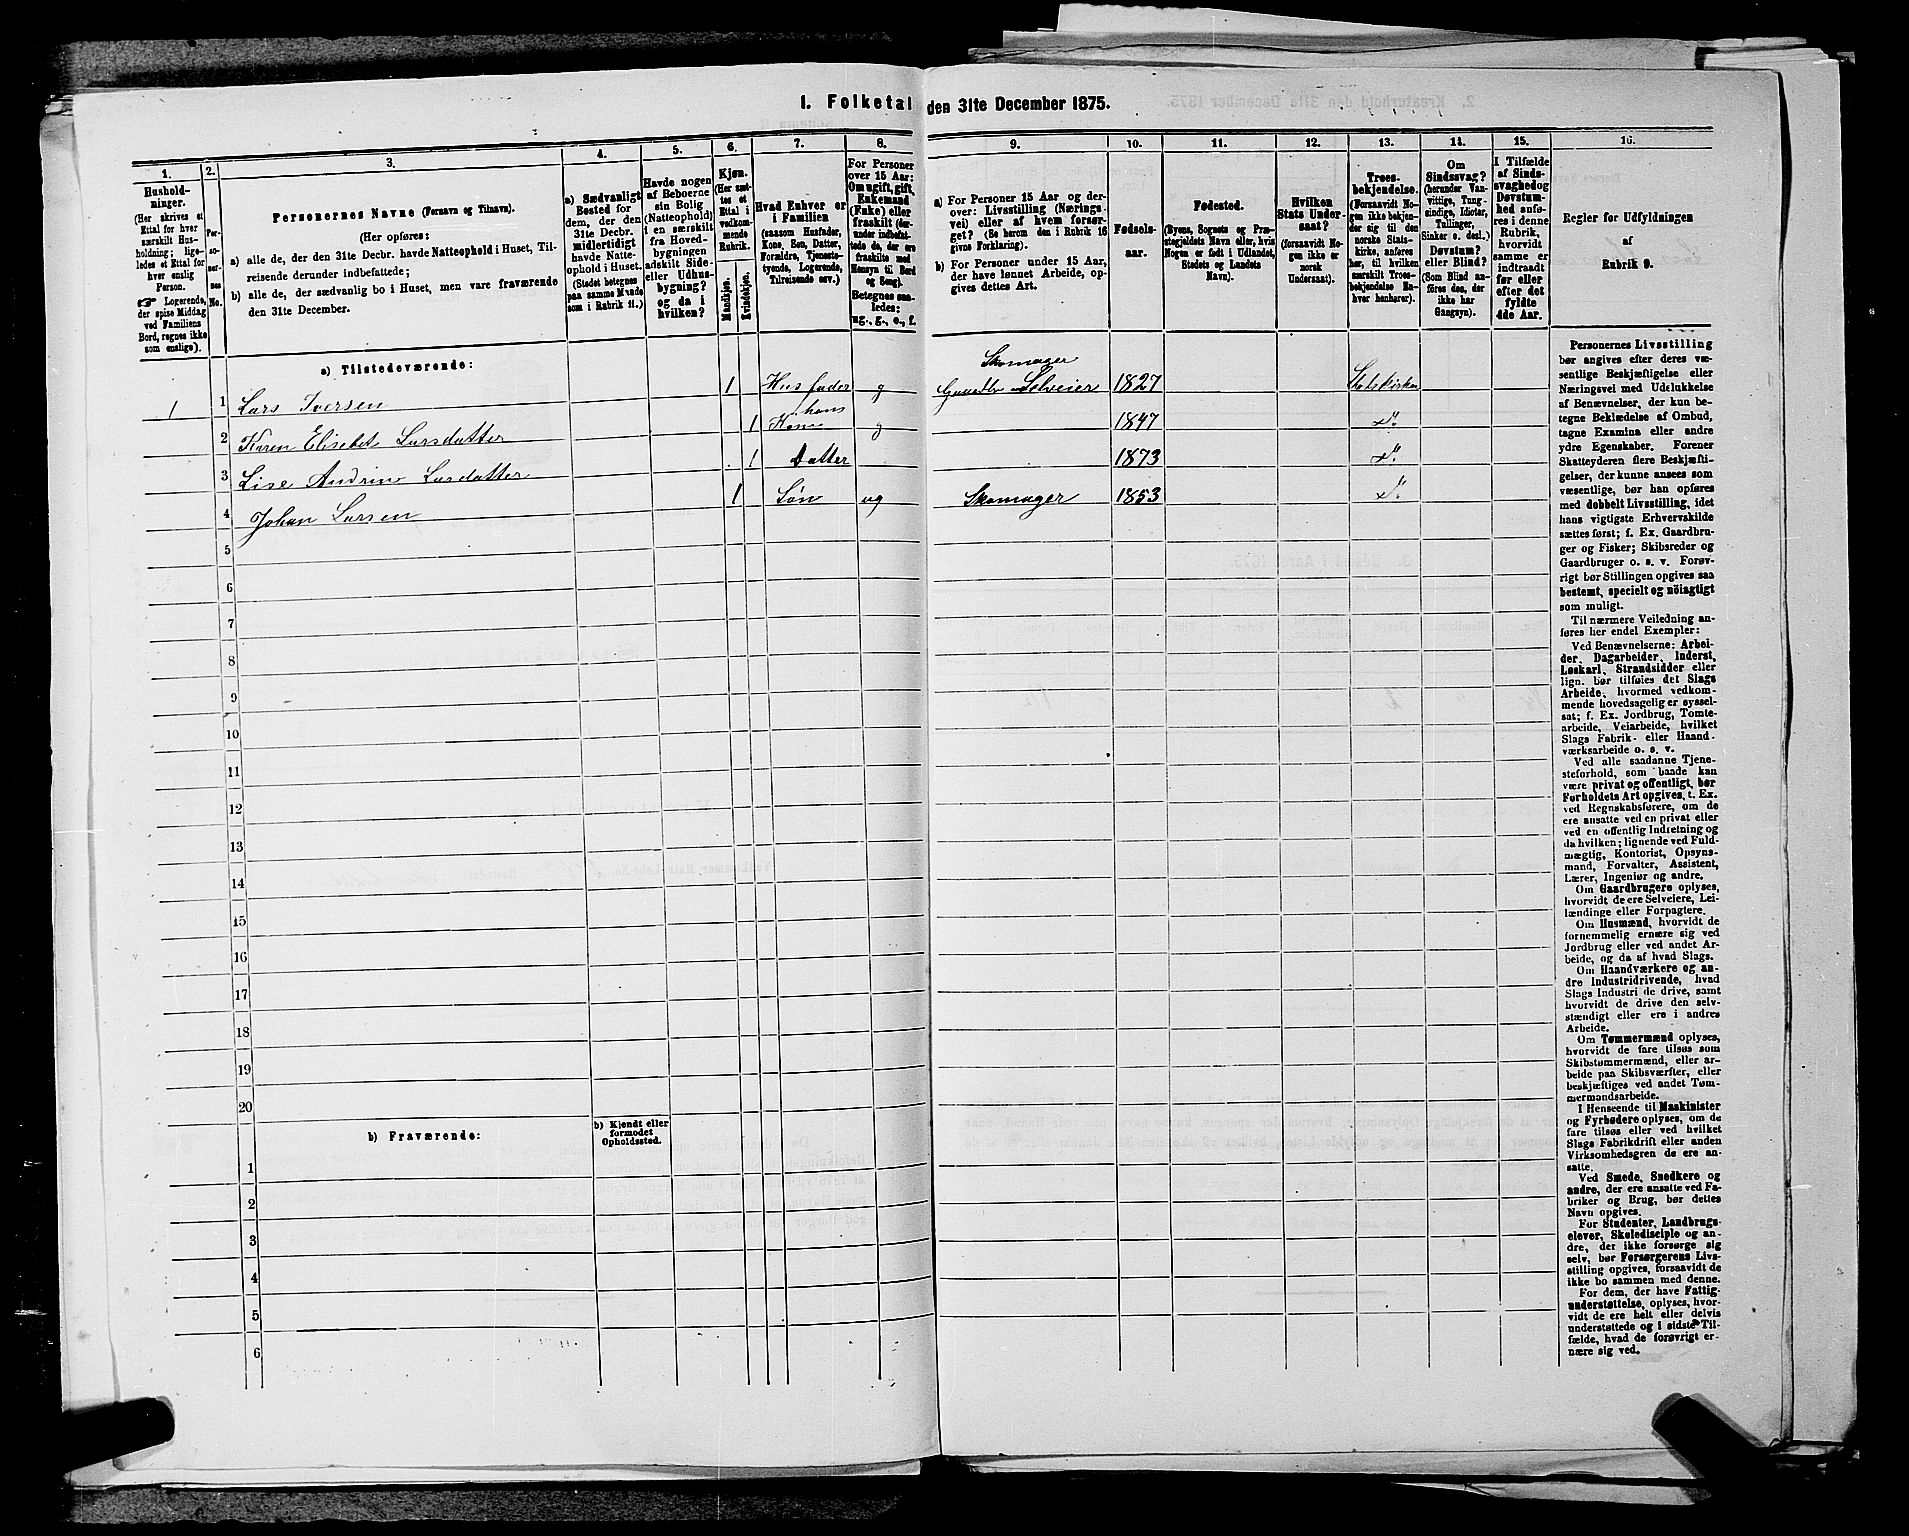 1. Folketal den 31te December 1875.
1.
2.
3.
4.
5.
6.
7.
8.
9.
10.
11.
12.
13.
14.
15.
16.
Hushold-
ninger.
(Her skrives et
Ettal for hver
særskilt Hus-
holdning; lige-
ledes et Ettal for
hver enslig
Person.
☞ Logerende,
der spise Middag
ved Familiens
Bord, regnes ikke
som enslige).
Per-
so-
ner-
nes
No.
Personernes Navne (Fornavn og Tilnavn).
(Her opføres:
a) alle de, der den 31te Decbr. havde Natteophold i Huset, Til-
reisende derunder indbefattede;
b) alle de, der sædvanlig bo i Huset, men vare fraværende
den 31te December.
a) Sædvanligt
Bosted for
dem, der den
31te Decbr.
midlertidigt
havde Natte-
ophold i Huset.
(Stedet betegnes
paa samme Maade
som i Rubrik 11.)
Havde nogen
af Beboerne
sin Bolig
(Natteophold)
i en særskilt
fra Hoved-
bygningen
adskilt Side-
eller Udhus-
bygning?
og da i
hvilken?
Kjøn.
(Her sæt-
tes et
Ettal i
vedkom-
mende
Rubrik.
Mandkjøn.
Kvindekjøn.
Hvad Enhver er
i Familien
(saasom Husfader,
Kone, Søn, Datter,
Forældre, Tjeneste-
tyende, Logerende,
Tilreisende osv.)
For Personer
over 15 Aar:
Om ugift, gift,
Enkemand
(Enke) eller
fraskilt (der-
under indbefat-
tede de, der ere
fraskilte med
Hensyn til Bord
og Seng).
Betegnes saa-
ledes:
ug., g., e., f.
a) For Personer 15 Aar og der-
over: Livsstilling (Nærings-
vei) eller af hvem forsør-
get? (Se herom den i Rubrik 16
givne Forklaring).
b) For Personer under 15 Aar,
der have lønnet Arbeide, op-
gives dettes Art.
Fødsels-
aar.
Fødested.
(Byens, Sognets og Præ-
stegjeldets Navn eller, hvis
Nogen er født i Udlandet,
Stedets og Landets
Navn).
Hvilken
Stats Under-
saat?
(forsaavidt No-
gen ikke er
norsk
Undersaat).
Troes-
bekjendelse.
(Forsaavidt No-
gen ikke bekjen-
der sig til den
norske Stats-
kirke, anføres
her, til hvilken
særskilt Troes-
bekjendelse En-
hver henhører).
Om
Sindssvag?
(herunder Van-
vittige, Tung-
sindige, Idioter,
Tullinger,
Sinker o. desl.)
Døvstum?
eller Blind?
(Som Blind an-
føres den, der
ikke har
Gangsyn).
I Tilfælde
af Sinds-
svaghed og
Døvstum-
hed anfø-
res i denne
Rubrik,
hvorvidt
samme er
indtraadt
før eller
efter det
fyldte
4de Aar.
Regler for Udfyldningen
af
Rubrik 9.
a) Tilstedeværende:
1 1 Lars Iversen 1 Husfader g Skomager Gaardbr. Selveier 1827 Statskirken
2 Karen Elisebet Larsdatter 1 hans Kone g 1847 do
3 Lise Andrine Larsdatter 1 Datter 1873 do
4 Johan Larsen 1 Søn ug Skomager 1853 do
5
6
7
8
9
10
11
12
13
14
15
16
17
18
19
20
b) Fraværende:
b) Kjendt eller
formodet
Opholdssted.
1
2
3
4
5
6
Personernes Livsstilling
bør angives efter deres væ-
sentlige Beskjæftigelse eller
Næringsvei med Udelukkelse
af Benævnelser, der kun be-
tegne Beklædelse af Ombud,
tagne Examina eller andre
ydre Egenskaber. Forener
Skatteyderen flere Beskjæfti-
gelser, der kunne ansees som
væsentlige, bør han opføres
med dobbelt Livsstilling, idet
hans vigtigste Erhvervskilde
sættes først; f. Ex. Gaardbru-
ger og Fisker; Skibsreder og
Gaardbruger o. s. v. Forøv-
rigt bør Stillingen opgives saa
bestemt, specielt og nöiagtigt
som muligt.
Til nærmere Veiledning an-
føres her endel Exempler:
Ved Benævnelserne: Arbei-
der, Dagarbeider, Inderst,
Løskarl, Strandsidder eller
lign. bør tilføies det Slags
Arbeide, hvormed vedkom-
mende hovedsagelig er syssel-
sat; f. Ex. Jordbrug, Tomte-
arbeide, Veiarbeide, hvilket
Slags Fabrik- eller Haand-
værksarbeide o. s. v.
Ved alle saadanne Tjene-
steforhold, som baade kan
være privat og offentligt, bør
Forholdets Art opgives, t. Ex.
ved Regnskabsførere, om de
ere ansatte ved en privat eller
ved en offentlig Indretning og
da hvilken; lignende ved Fuld-
mægtig, Kontorist, Opsyns-
mand, Forvalter, Assistent,
Lærer, Ingeniør og andre.
Om Gaardbrugere oplyses,
hvorvidt de ere Selveiere, Lei-
lændinge eller Forpagtere.
Om Husmænd, hvorvidt de
fornemmelig ernære sig ved
Jordbrug eller ved andet Ar-
beide, og da af hvad Slags.
Om Haandværkere og an-
dre Industridrivende, hvad
Slags Industri de drive, samt
hvorvidt de drive den selv-
stændigt eller ere i andres
Arbeide.
Om Tømmermænd oplyses,
hvorvidt de fare tilsøs som
Skibstømmermænd, eller ar-
beide paa Skibsværfter, eller
beskjæftiges ved andet Tøm-
mermandsarbeide.
I Henseende til Maskinister
og Fyrbødere oplyses, om de
fare tilsøs eller ved hvilket
Slags Fabrikdrift eller anden
Virksomhedsgren de ere an-
satte.
Ved Smede, Snedkere og
andre, der ere ansatte ved Fa-
briker og Brug, bør dettes
Navn opgives.
For Studenter, Landbrugs-
elever, Skoledisciple og an-
dre, der ikke forsørge sig
selv, bør Forsørgerens Livs-
stilling opgives, forsaavidt de
ikke bo sammen med denne.
For dem, der have Fattig-
understøttelse, oplyses, hvor-
vidt de ere helt eller delvis
understøttede og i sidste Til-
fælde, hvad de forøvrigt er-
nære sig ved.